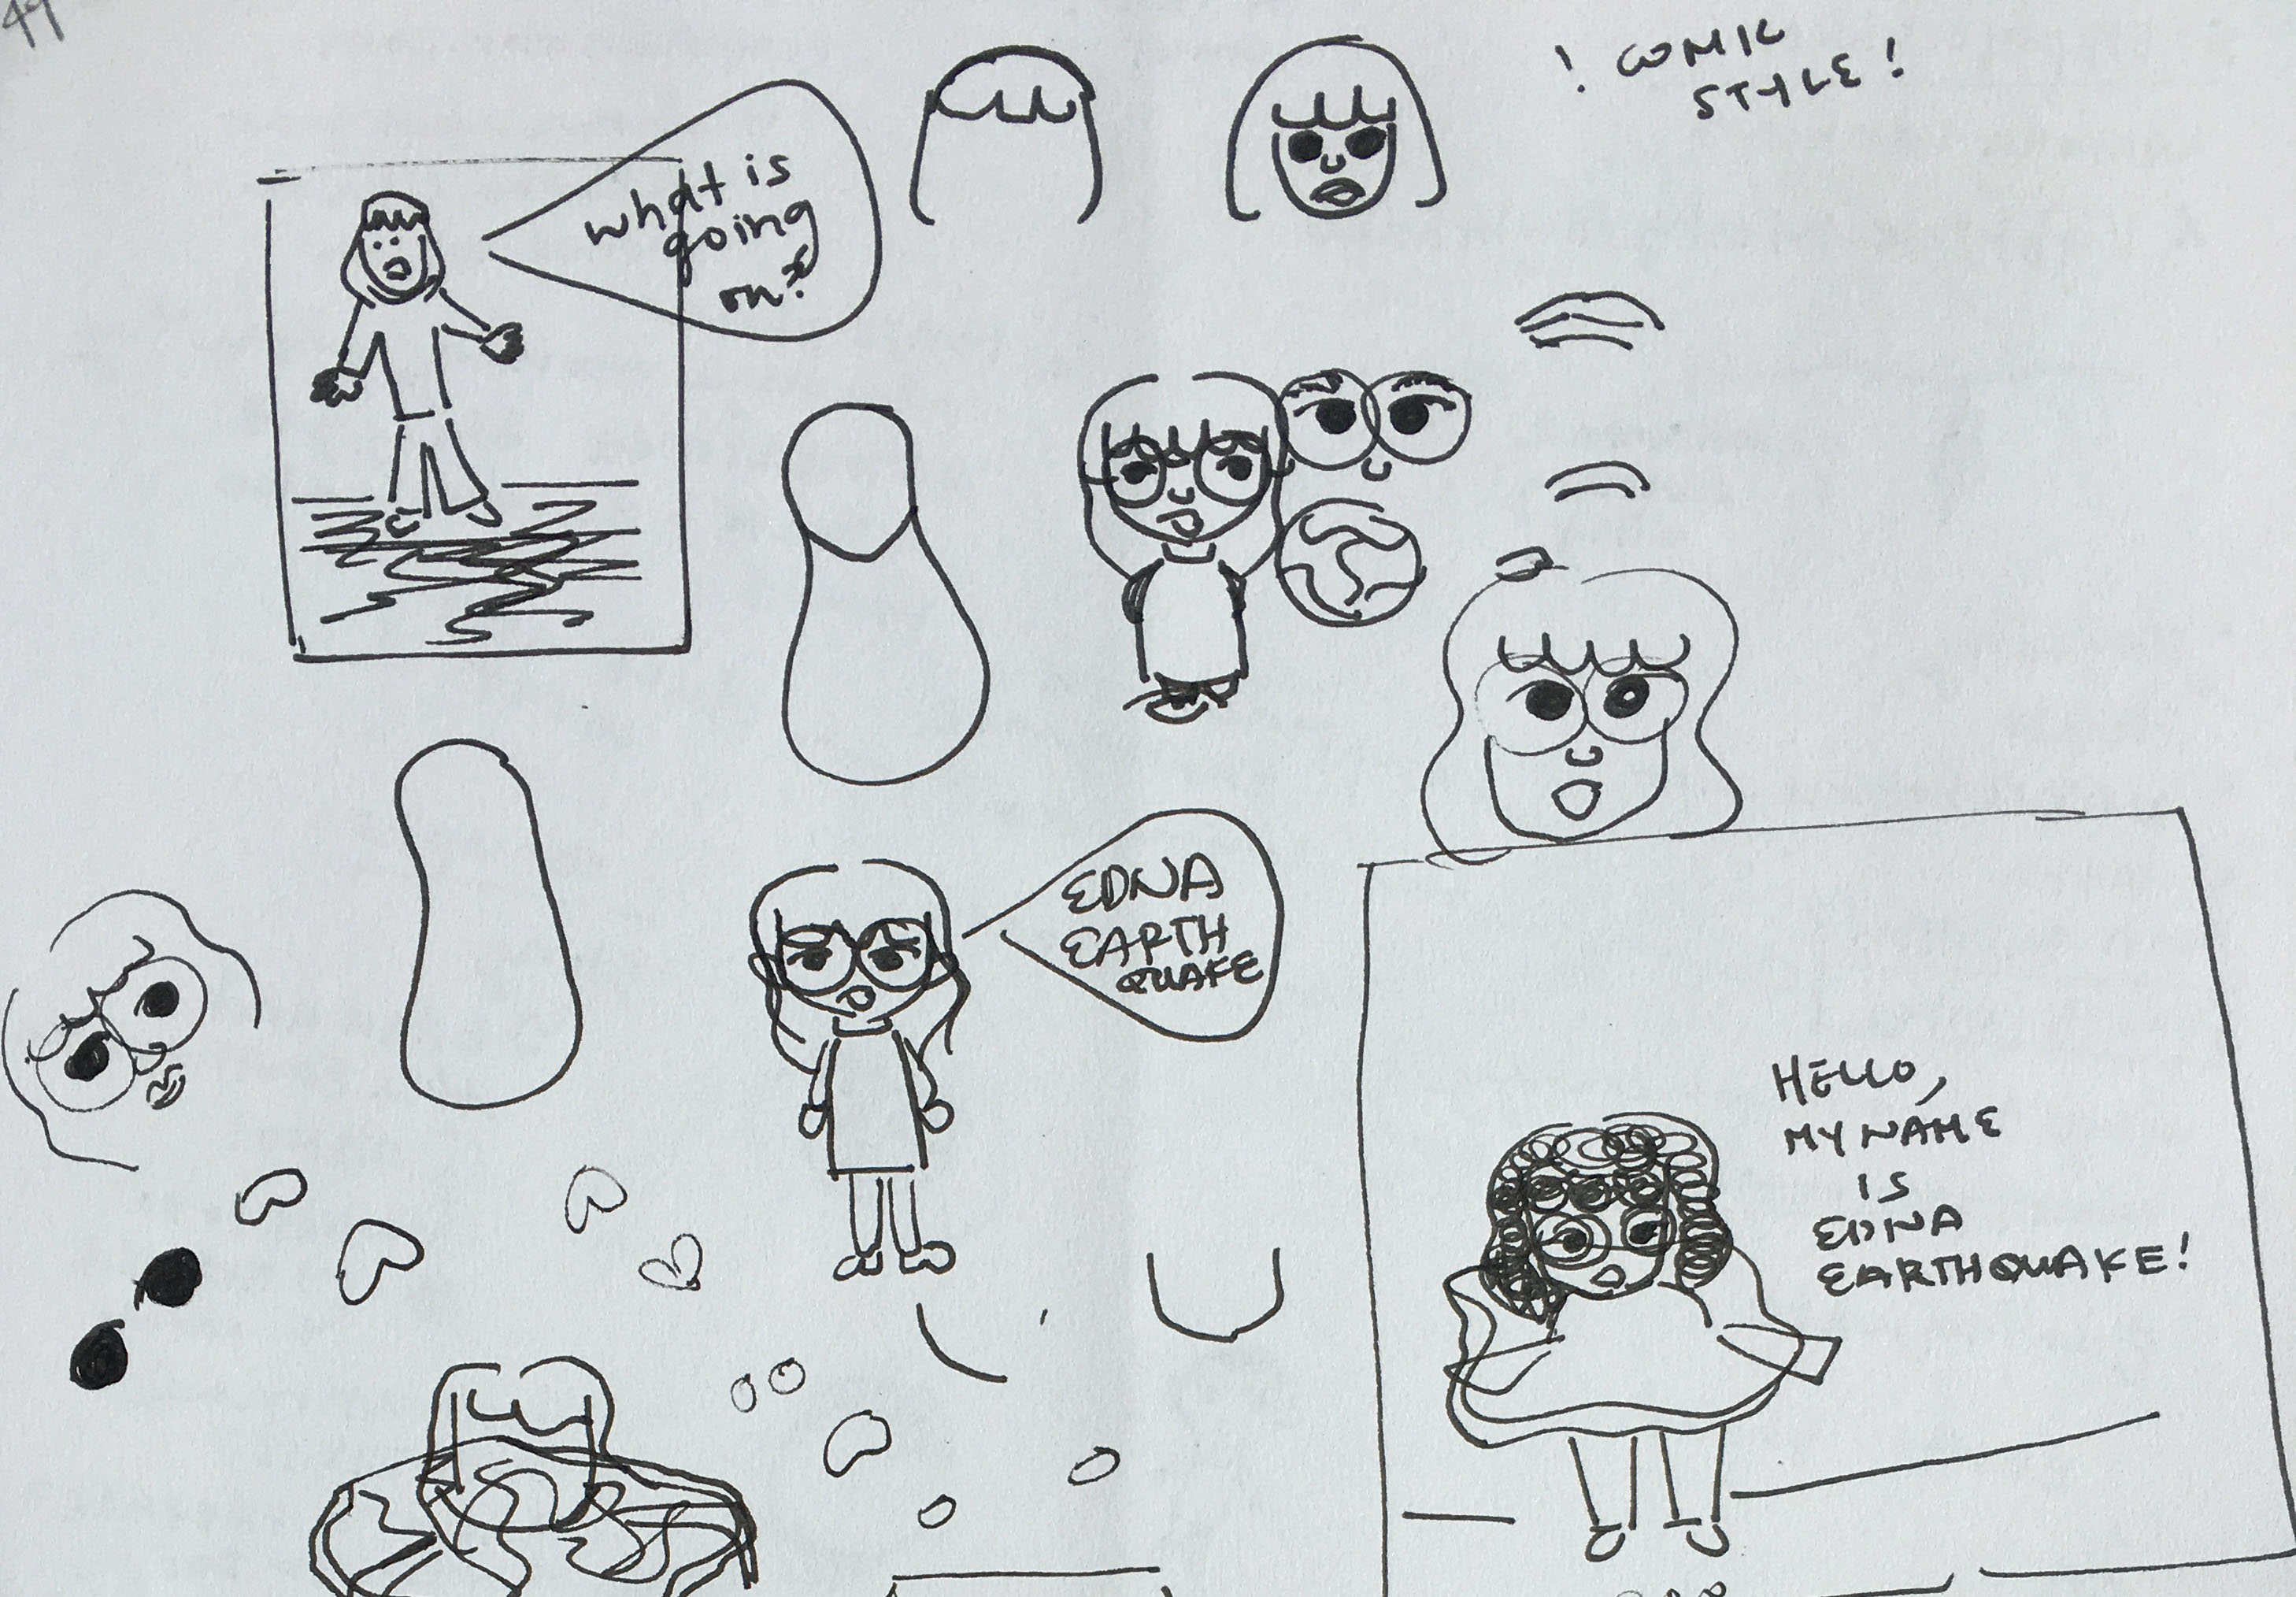 49
! COMIC
STYLE!
what is
going
on?
EDNA
EARTH
QUAKE
HELLO,
MY NAME
IS
EDNA
EARTHQUAKE!